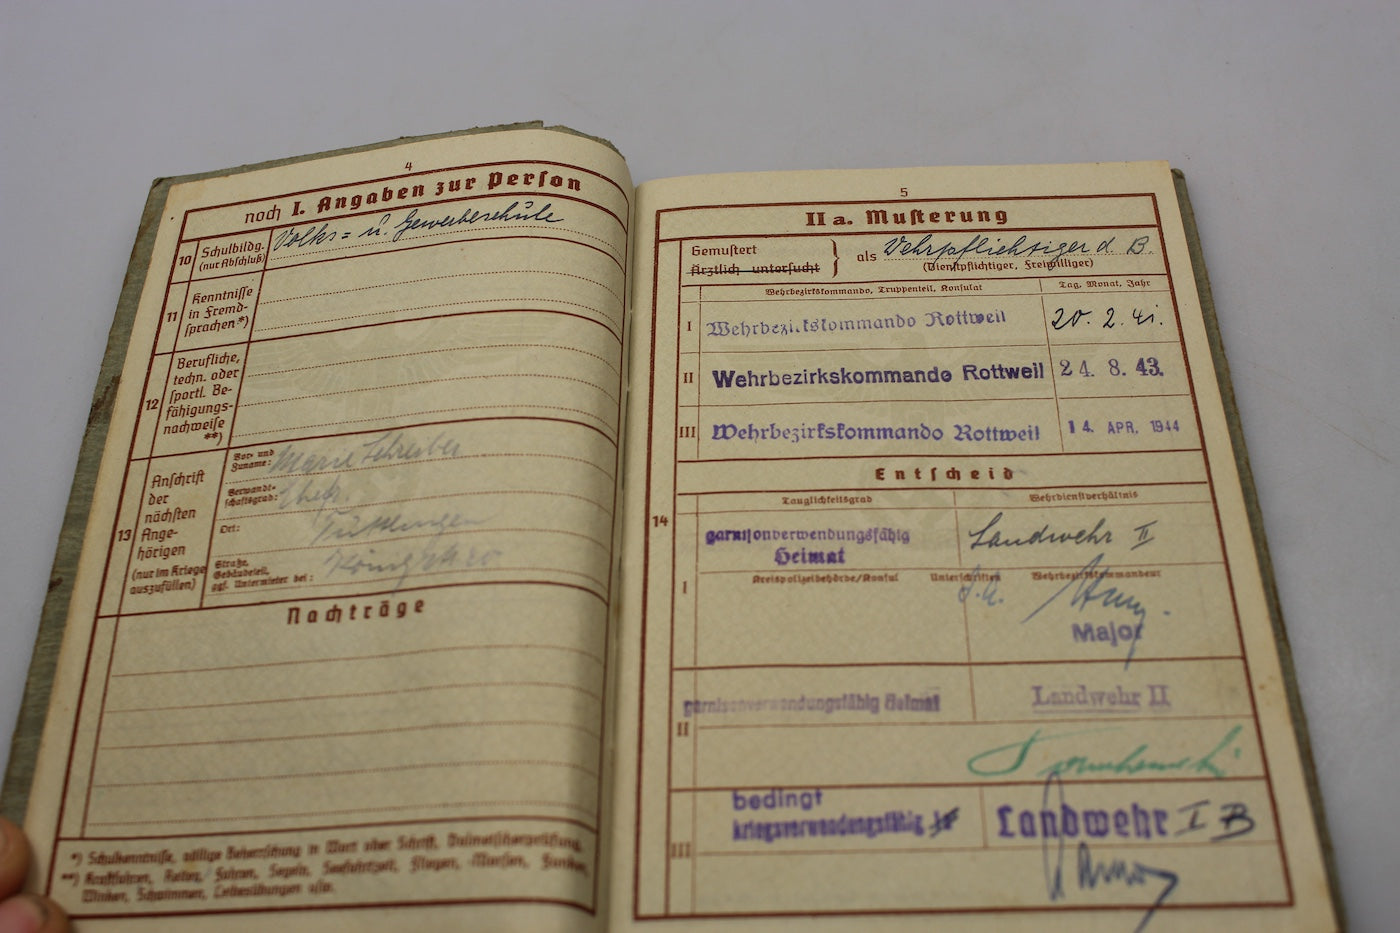 4
noch I. Angaben zur Person
10
Schulbildg.
(nur Abschluß)
Volks= u. Gewerbeschule
11
Kenntnisse
in Fremd-
sprachen*)
12
Berufliche,
techn. oder
sportl. Be-
fähigungs-
nachweise
**)
13
Anschrift
der
nächsten
Ange-
hörigen
(nur im Kriege
auszufüllen)
Vor- und
Zuname:
Marie Schreiber
Verwandt-
schaftsgrad:
Ehefr.
Ort:
Tuttlingen
Straße,
Gebäudeteil,
ggf. Untermieter bei:
Nachträge
*) Schulkenntnisse, völlige Beherrschung in Wort oder Schrift, Dolmetscherprüfung.
**) Kraftfahren, Reiten, Fahren, Segeln, Seefahrtzeit, Fliegen, Morsen, Funken,
Winker, Schwimmer, Leibesübungen usw.
5
II a. Musterung
Gemustert
Ärztlich untersucht
} als Wehrpflichtiger d. B.
(Dienstpflichtiger, Freiwilliger)
Wehrbezirkskommando, Truppenteil, Konsulat
Tag, Monat, Jahr
I
Wehrbezirkskommando Rottweil
20. 2. 41.
II
Wehrbezirkskommando Rottweil
24. 8. 43.
III
Wehrbezirkskommando Rottweil
14. APR. 1944
Entscheid
14
Tauglichkeitsgrad
Wehrdienstverhältnis
I
garnisonverwendungsfähig
Heimat
Landwehr II
Kreispolizeibehörde/Konsul
Unterschriften
Wehrbezirkskommandeur
Major
II
garnisonverwendungsfähig Heimat
Landwehr II
III
bedingt
kriegsverwendungsfähig
Landwehr I B